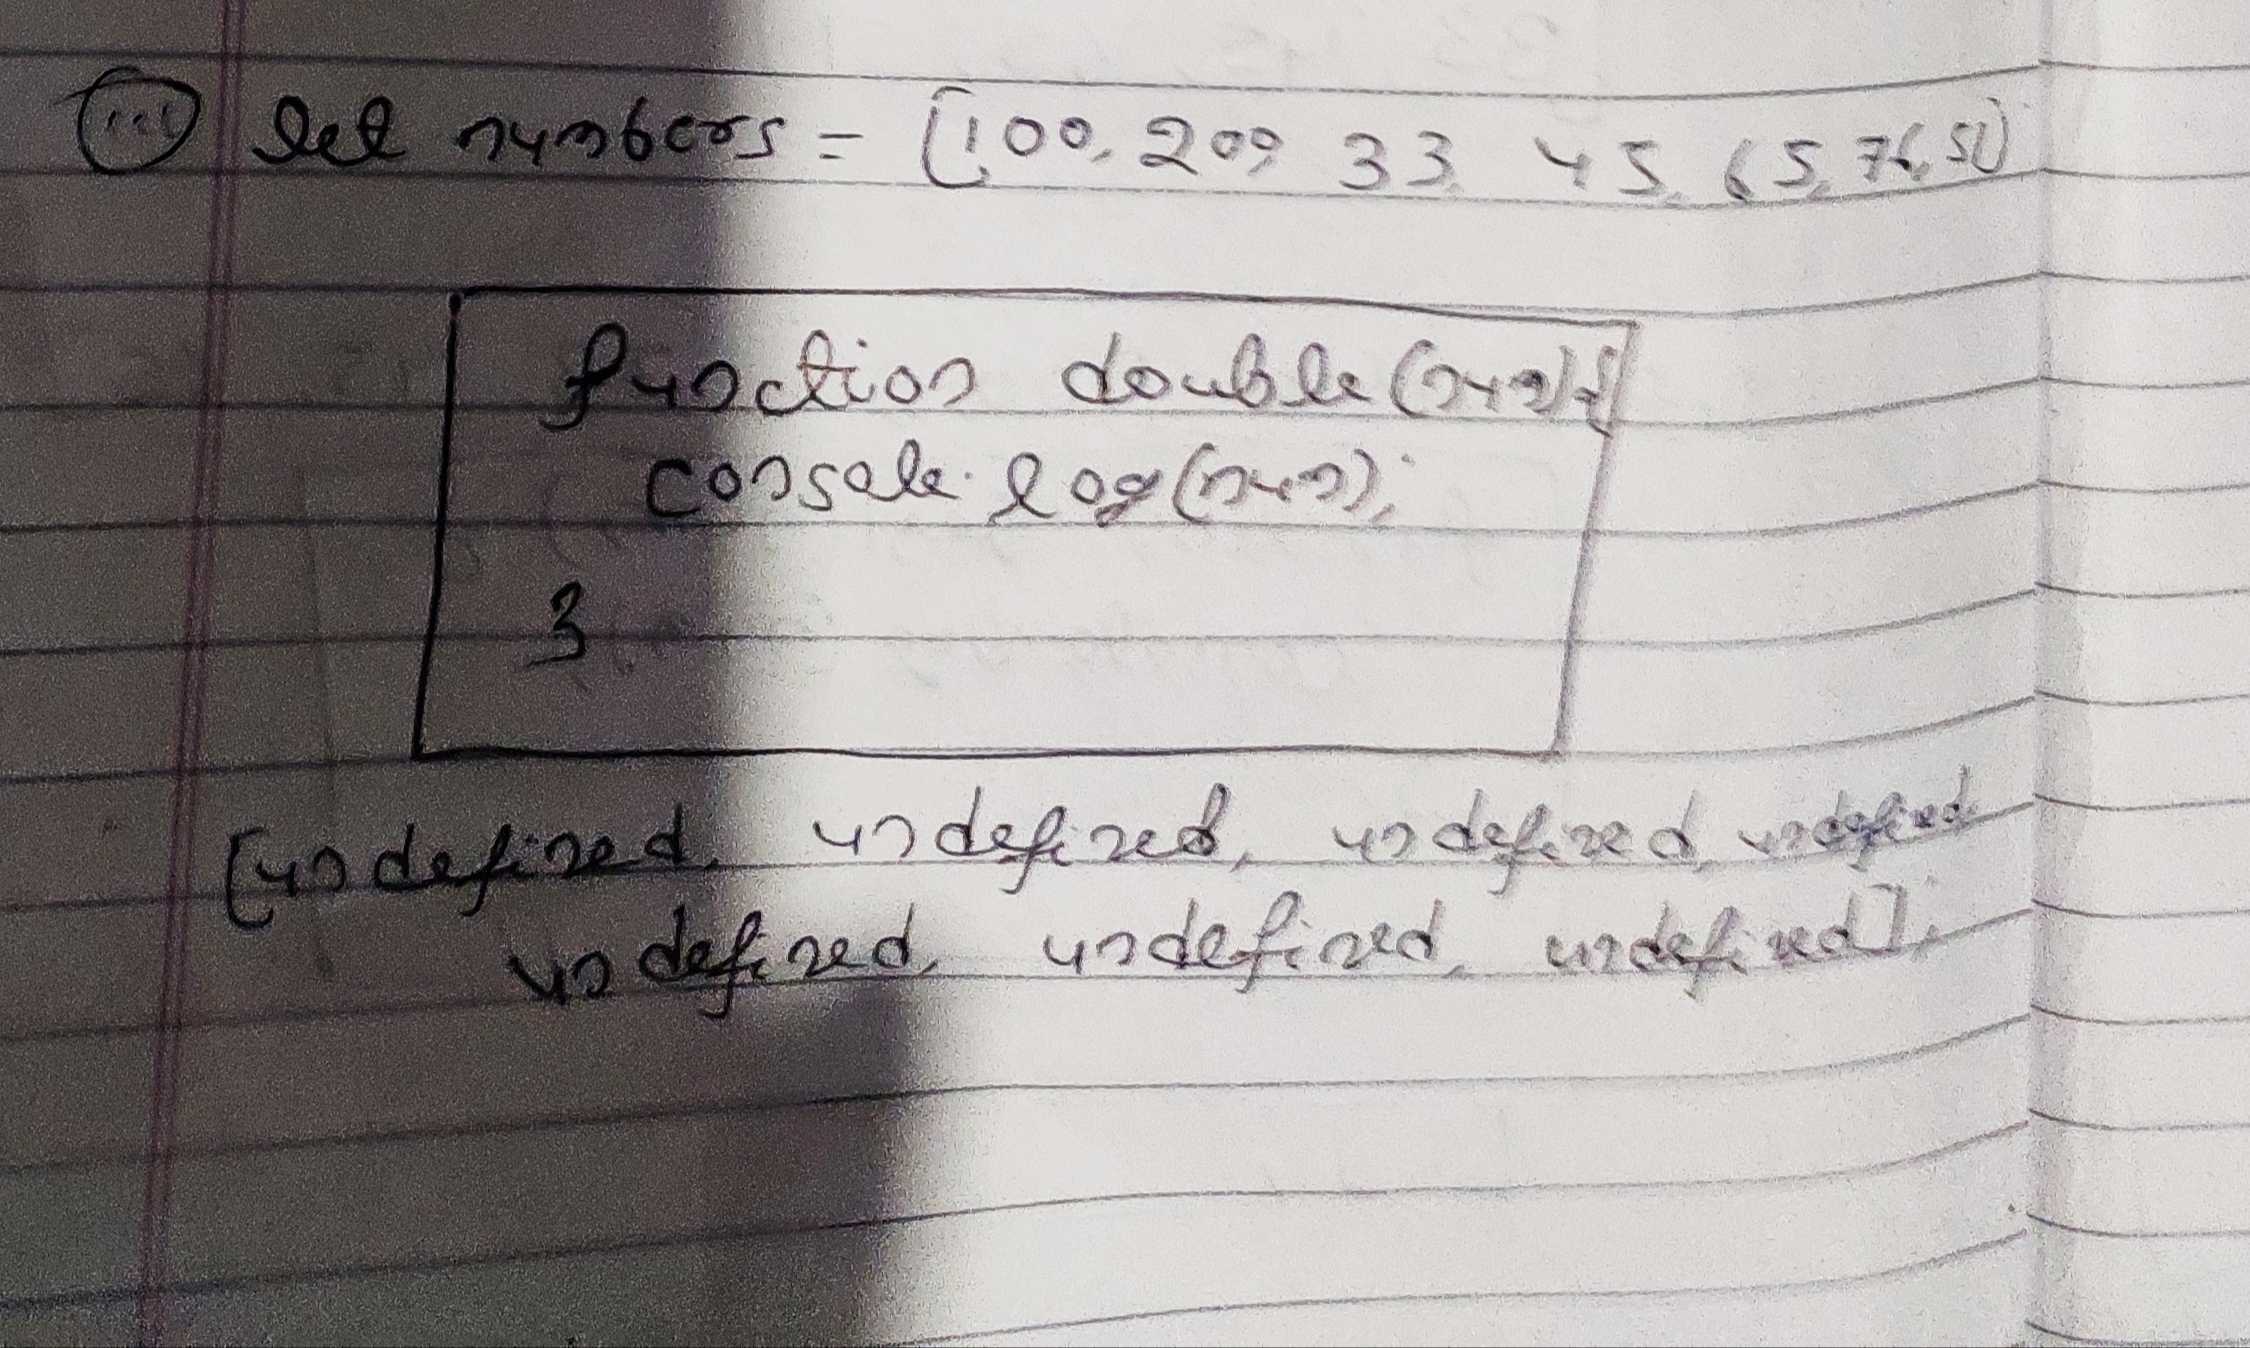 (iii) let numbers = [100, 200, 33, 45, 65, 76, 51]
function double(num){
console.log(num);
}
[undefined, undefined, undefined, undefined
undefined, undefined, undefined];